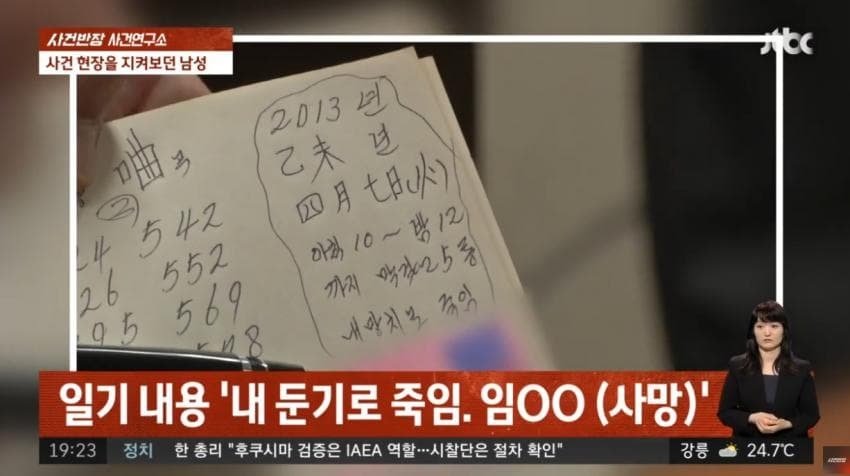 사건반장 사건연구소
사건 현장을 지켜보던 남성
jtbc
2013 년
乙未 년
四月 七日(火)
아침 10 ~ 밤 12
까지
죽임
542
26 552
569
일기 내용 '내 둔기로 죽임. 임OO (사망)'
19:23 정치 한 총리 "후쿠시마 검증은 IAEA 역할…시찰단은 절차 확인" 강릉 24.7℃
사건반장